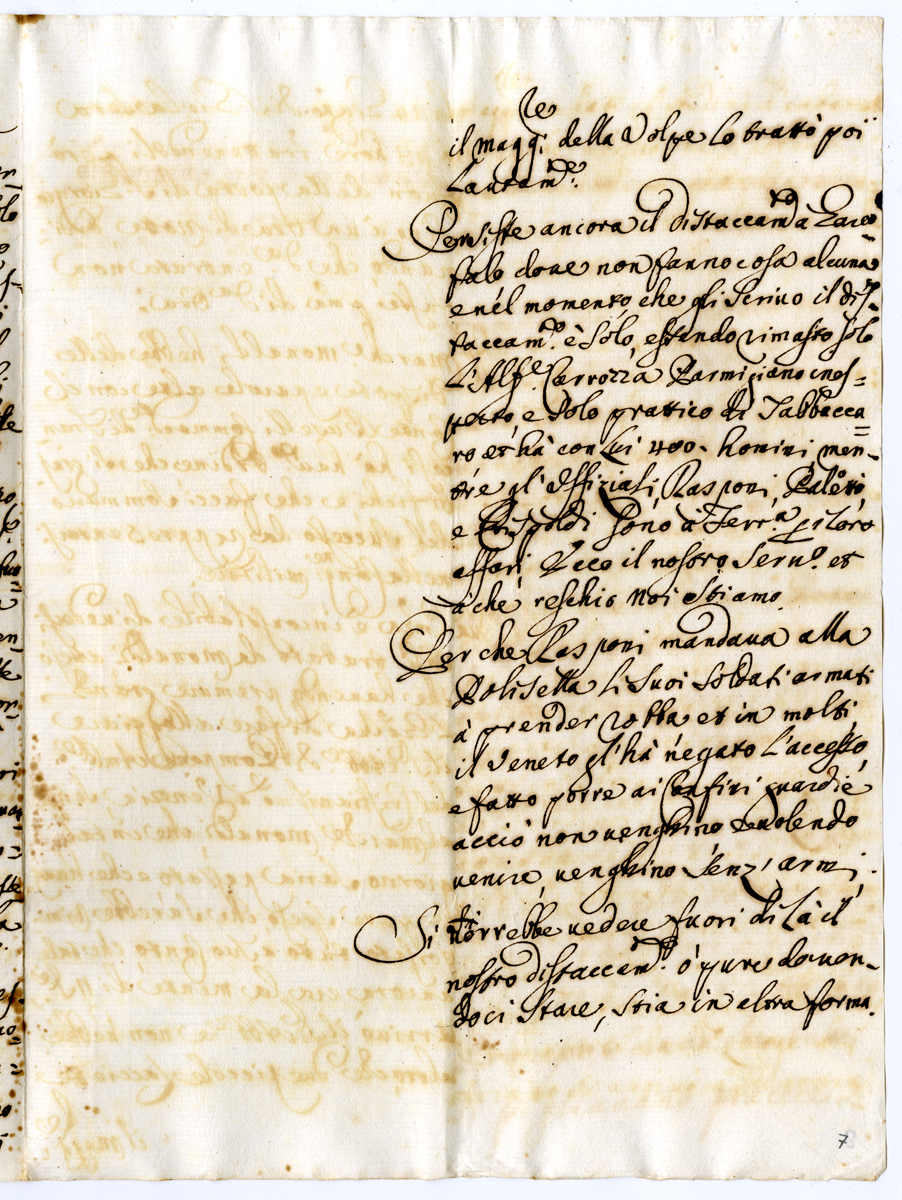 il magg:re della Volpe lo trattò poi
Lautam.te
Persiste ancora il distaccam.to a Zaco=
falo doue non fanno cosa alcuna
e nél momento, che gli scriuo il dis=
taccam.to è solo, essendo rimasto solo
L'Alf.e Carrozza Parmigiano ines=
perto, e solo prattico di Tabbacca=
ro et hà con lui 400. homini men=
tre gl'Offiziali, Rasponi,
e Rispoldi sono à Ferr.a p i loro
affari. Ecco il nostro Seru.o et
à che reschio noi stiamo.
Perche Rasponi mandaua alla
Polisella li suoi soldati armati
à prender robba et in molti,
il Veneto gl'hà negato l'accesso,
e fatto porre ai Confini guardie
acciò non venghino e volendo
venire, venghino senz'armi.
Si vorrebbe uedere fuori di là il
nostro distaccam.to ò pure douen=
doci stare, stia in altra forma.
7